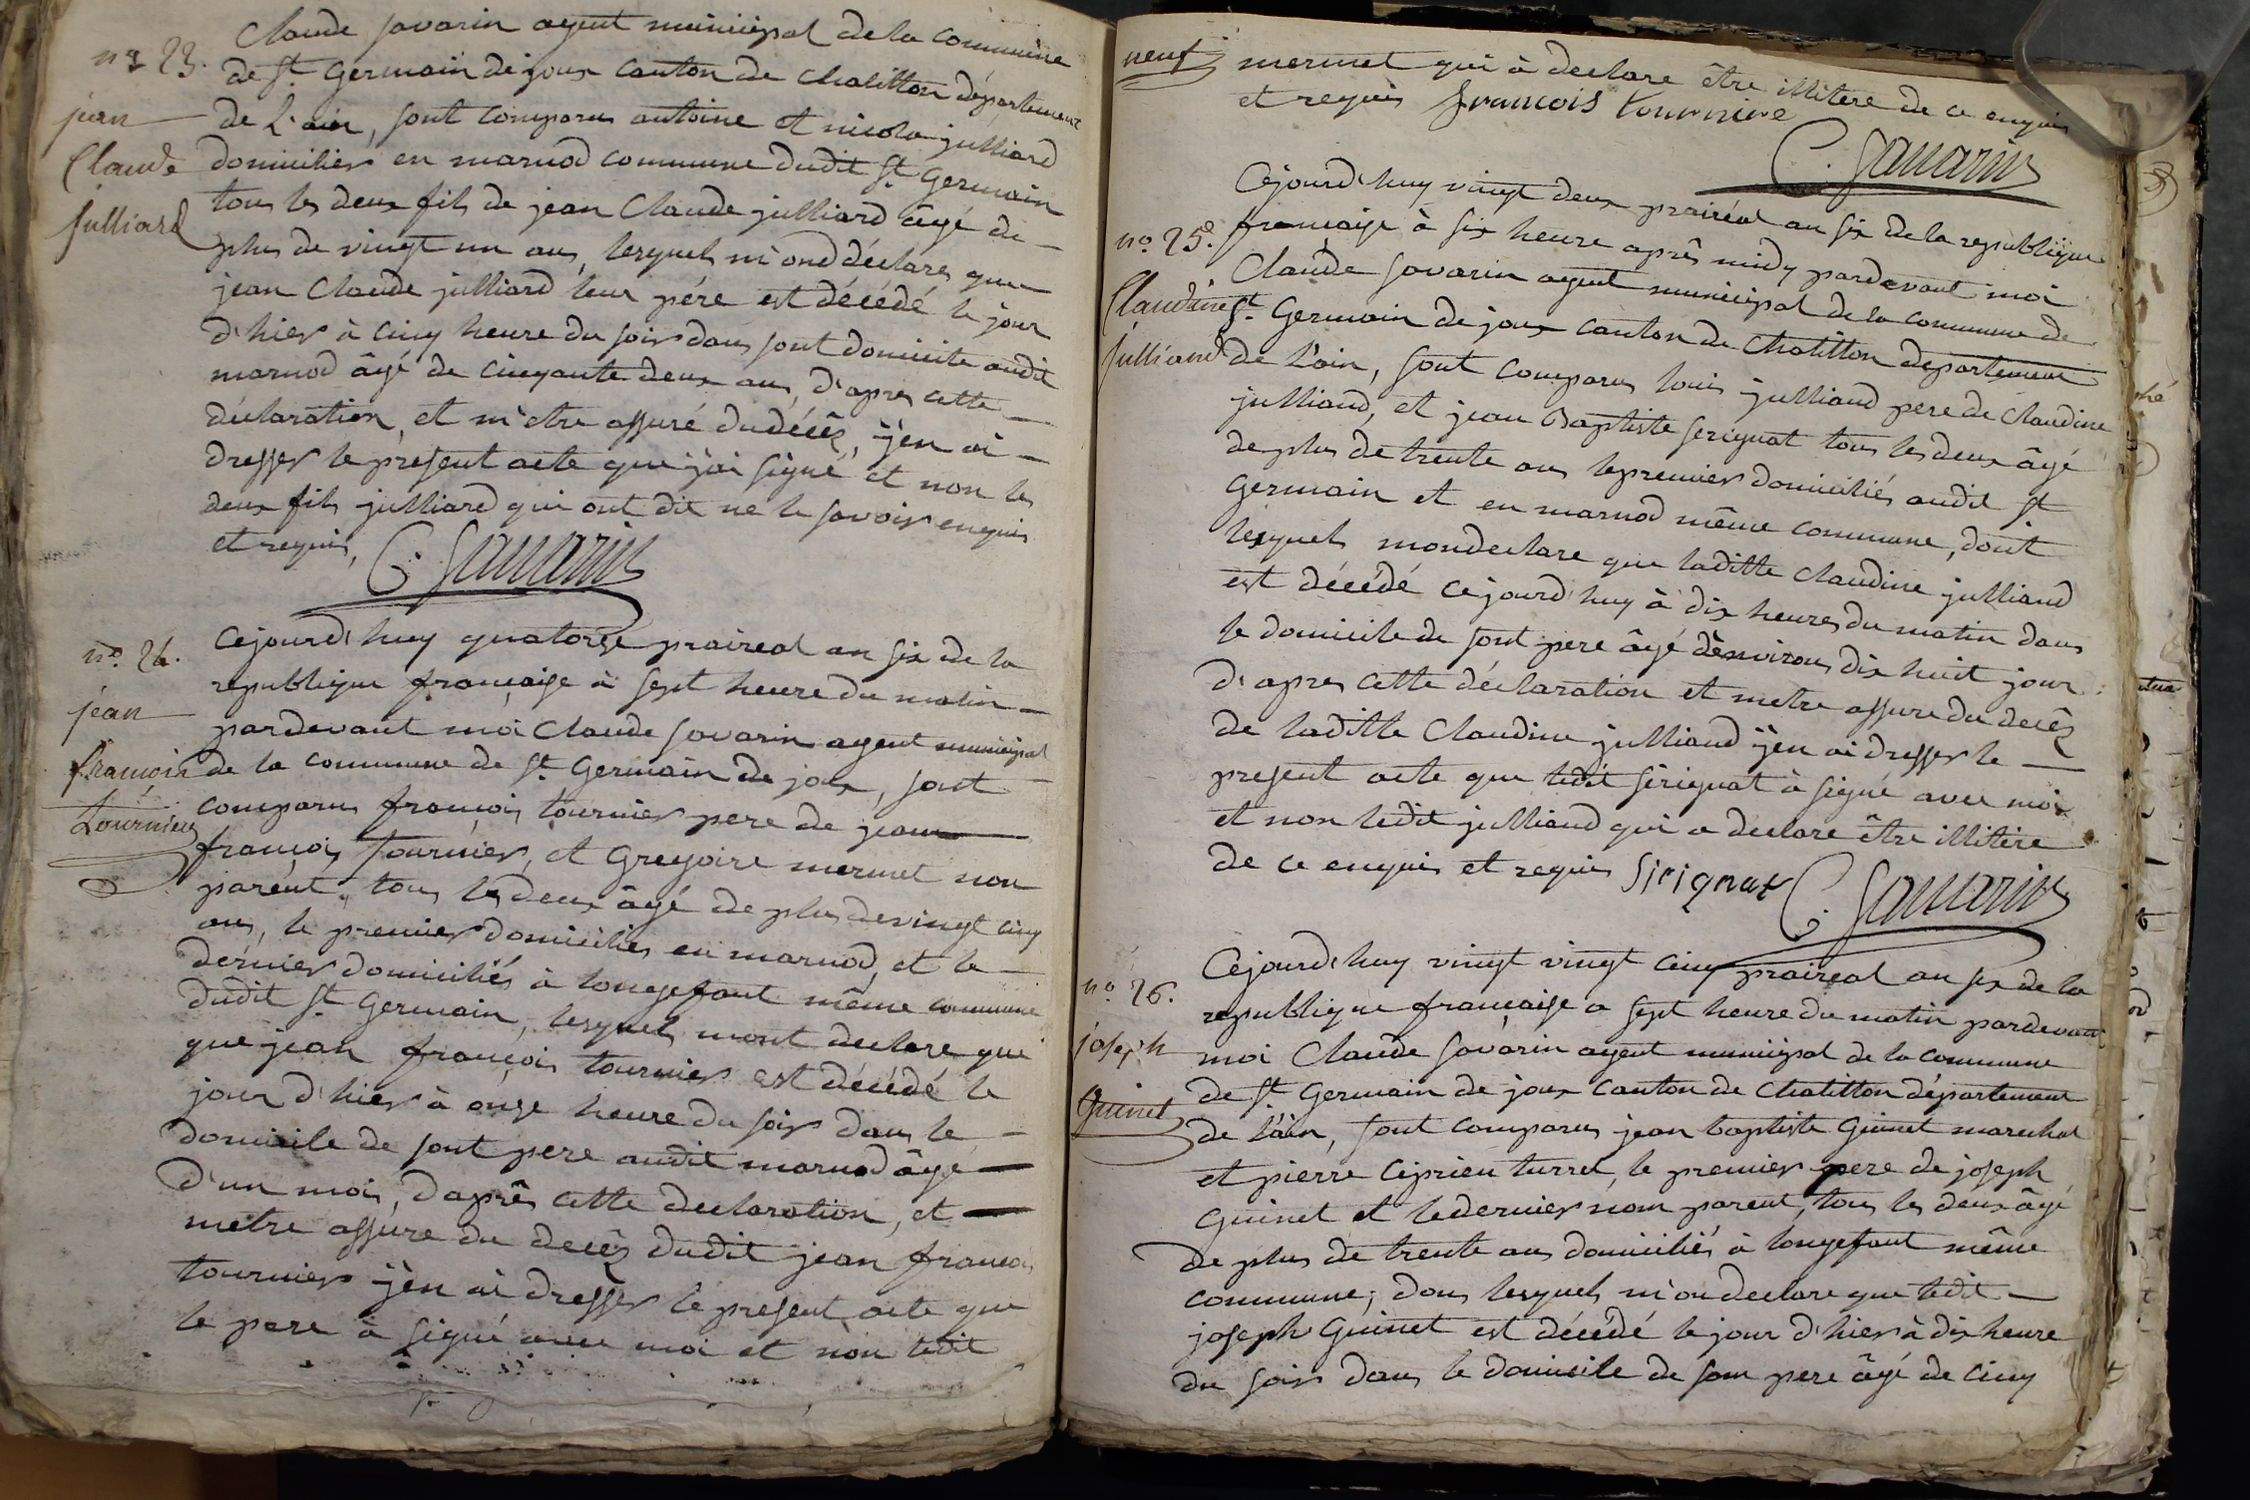 Claude savarin agent municipal de la commune
no 23. de St. Germain de joux canton de chatillon département
jean de L'ain, sont comparus antoine et nicola julliard
Claude domiciliés en marnod commune dudit St. Germain
Julliard tous les deux fils de jean Claude julliard âgé de
plus de vingt un ans, lesquels m'ond déclares que
jean Claude julliard leur pére est décédé le jour
d'hier à cinq heure du soir dans sont domicile audit
marnod âgé de cinquante deux ans, d'apres cette
déclaration, et m'etre assuré du décês, j'en ai
dresser le present acte que j'ai signé et non les
deux fils julliard qui ont dit ne le savoir enquis
et requis, C. Savarin
no. 24. Cejourd'huy quatorse praireal an six de la
republique française à sept heure du matin
jean pardevant moi Claude savarin agent municipal
françois de la commune de St. Germain de joux, sont
Tournier comparus françois tournier pere de jean
françois Tournier, et Gregoire mermet non
parent, tous les deux âgé de plus de vingt cinq
ans, le premier domiciliés en marnod, et le
dernier domiciliés à longefant même commune
dudit St. Germain, lesquels mont declare que
que jean françois tournier est décédé le
jour d'hier à onze heure du soir dans le
domicile de sont pere audit marnod âgé
d'un mois, d'aprês cette declaration, et
metre assure du decês dudit jean francois
tournier j'en ai dresser le present acte que
le pere à signé avec moi et non ledit
neuf mermet qui à declare être illitere de ce enquis
et requis francois tournire
C. Savarin
Cejourd'huy vingt deux praireal an six de la republique
no. 25. francaise à six heure aprês midy pardevant moi
Claude savarin agent municipal de la commune de
Claudine St. Germain de joux canton de Chatillon departement
Julliand de L'ain, sont comparus louis julliand pere de Claudine
julliand, et jean Baptiste serignat tous les deux âgé
de plus de trente ans le premier domiciliés audit St
Germain et en marnod même commune, dont
lesquels mondeclare que laditte Claudine julliand
est décédé cejourd'huy à dix heures du matin dans
le domicile de sont pere âgé dênvirons dix huit jour
d'apres cette déclaration et metre assure du decês
de laditte Claudine julliand j'en ai dresser le
present acte que ledit sirignat à signé avec moi
et non ledit julliand qui a declare être illitere
de ce enquis et requis Sirignat C. Savarin
Cejourd'huy vingt vingt cinq praireal an six de la
no. 26. republique française a sept heure du matin pardevant
joseph moi Claude savarin agent municipal de la commune
de St. Germain de joux canton de Chatillon département
Guinet de l'ain, sont comparus jean baptiste Guinet marechal
et pierre ciprien turrel, le premier pere de joseph
Guinet et le dernier nom parent, tous les deux âgé
de plus de trente ans domiciliés à longefant même
commune, dons lesquels m'on declare que ledit
joseph Guinet est décédé le jour d'hier à dix heure
du soir dans le domicile de som pere âgé de cinq